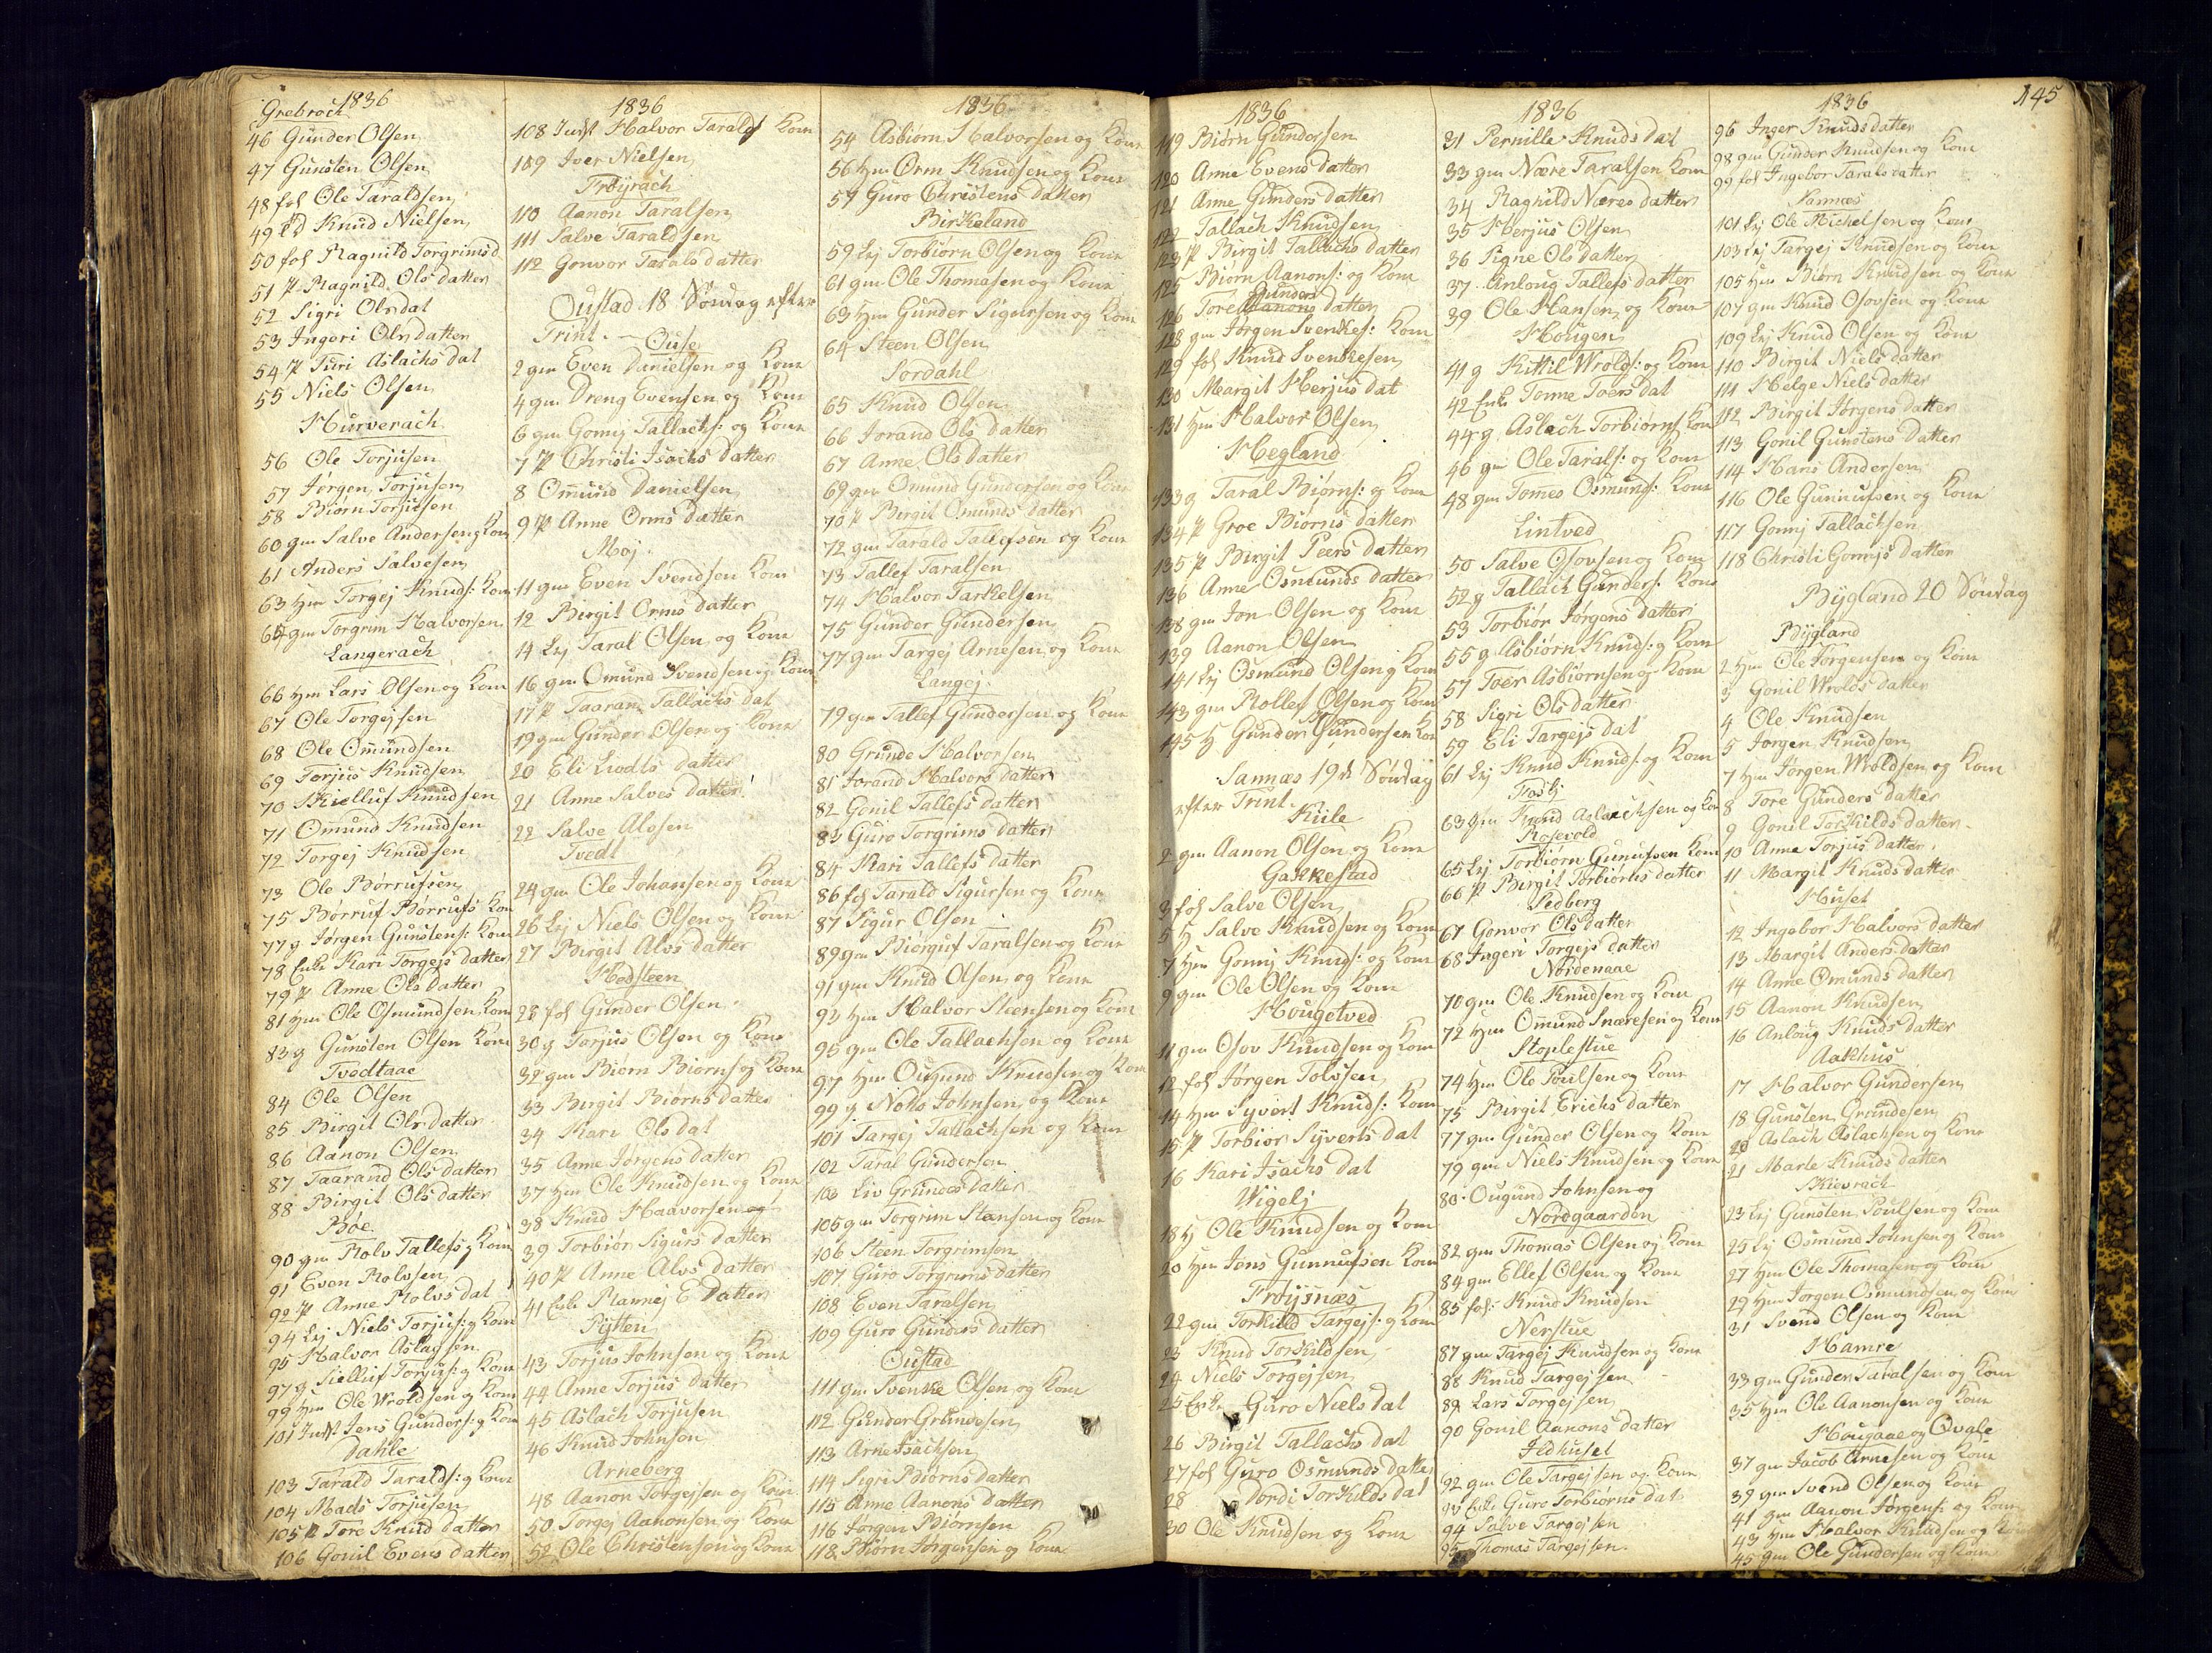 1836
Grebroch
46 Gunder Olsen
47 Gunsten Olsen
48 fol Ole Taraldsen
49 Ld Knud Nielsen
50 fol Ragnild Torgrimsd
51 P Ragnild Ols datter
52 Sigri Olsdat
53 Ingeri Olsdatter
54 P Turi Aslachs dat
55 Niels Olsen
Hurverach
56 Ole Torjusen
57 Jørgen Torjusen
58 Biørn Torjusen
60 gm Salve Andersen og Kone
61 Anders Salvesen
63 Hm Torgej Knuds: Kone
65 gm Torgrim Halvorsen
Langerach
66 Hm Lars Olsen og Kone
67 Ole Torgejsen
68 Ole Omundsen
69 Torjus Knudsen
70 Skielluf Knudsen
71 Omund Knudsen
72 Torgej Knudsen
73 Ole Børrufsen
75 Børruf Børrufs Kone
77 g Jørgen Gunstens: Kone
78 Enke Kari Torgejs datter
79 P Anne Ols datter
81 Hm Ole Osmundsen Kone
83 g Gunsten Olsen Kone
Tvedtaae
84 Ole Olsen
85 Birgit Ols datter
86 Aanon Olsen
87 Taarand Ols datter
88 Birgit Ols datter
Bøe
90 gm Rolv Tallefs og Kone
91 Even Rolvsen
92 P Anne Rolvs dat
94 Lej Niels Torjus: g Kone
95 Halvor Aslagsen
97 g Sielluf Torjus: g Kone
99 Hm Ole Wroldsen og Kone
101 Inst Jens Gunders: g Kone
Dahle
103 Tarald Taralds: g Kone
104 Mads Torjusen
105 P Tore Knud datter
106 Gonil Evens datter
1836
108 Inst Halvor Taralds Kone
109 Iver Nielsen
Frøyrach
110 Aanon Taralsen
111 Salve Taraldsen
112 Gonvor Tarals datter
Oustad 18 Søndag efter
Trint.
Ouse
2 gm Even Danielsen og Kone
4 gm Dreng Evensen og Kone
6 gm Gonnj Tallachs: og Kone
7 P Christi Isachs datter
8 Omund Danielsen
9 P Anne Orms datter
Moj
11 gm Even Svendsen Kone
12 Birgit Orms datter
14 Lej Taral Olsen og Kone
16 gm Omund Svendsen og Kone
17 P Taaran Tallachs dat
19 gm Gunder Olsen og Kone
20 Eli Lvodls datter
21 Anne Salves datter
22 Salve Alvsen
Tvedt
24 gm Ole Johansen og Kone
26 Lej Niels Olsen og Kone
27 Birgit Alvs datter
Hodsteen
28 fol Gunder Olsen
30 g Torjus Olsen og Kone
32 gm Biørn Biørns og Kone
33 Birgit Biørns datter
34 Kari Ols dat
35 Anne Jørgens datter
37 Hm Ole Knudsen og Kone
38 Knud Haavorsen og
39 Torbiør Sigurs datter
40 P Anne Alvs datter
41 Enke Rannej E Datter
Pytten
43 Torjus Johnsen og Kone
44 Anne Torjus datter
45 Aslach Torjusen
46 Knud Johnsen
Arneberg
48 Aanon Torgejsen og Kone
50 Torgej Aanonsen og Kone
52 Ole Christensen og Kone
1836
54 Asbiørn Halvorsen og Kone
56 Hm Orm Knudsen og Kone
57 Guro Christens datter
Birkeland
59 Lej Torbiørn Olsen og Kone
61 gm Ole Thomasen og Kone
63 Hm Gunder Sigursen og Kone
64 Steen Olsen
Sordahl
65 Knud Olsen
66 Jorand Ols datter
67 Anne Ols datter
69 gm Omund Gundersen og Kone
70 P Birgit Omunds datter
72 gm Tarald Tallefsen og Kone
73 Tallef Taralsen
74 Halvor Tarkelsen
75 Gunder Gundersen
77 gm Targej Arnesen og Kone
Langej
79 gm Tallef Gundersen og Kone
80 Grunde Halvorsen
81 Jorand Halvors datter
82 Gonil Tallefs datter
83 Guro Torgrims datter
84 Kari Tallefs datter
86 fol Tarald Sigursen og Kone
87 Sigur Olsen
89 gm Biørguf Taralsen og Kone
91 gm Knud Olsen og Kone
93 Hm Halvor Steensen og Kone
95 gm Ole Tallachsen og Kone
97 Hm Ougund Knudsen og Kone
99 g Notto Johnsen og Kone
101 Targej Tallachsen og Kone
102 Taral Gundersen
103 Liv Grundes datter
105 gm Torgrim Stensen og Kone
106 Steen Torgrimsen
107 Guro Torgrims datter
108 Even Taralsen
109 Guro Gunders datter
Oustad
111 gm Svenke Olsen og Kone
112 Gunder Grundesen
113 Arne Isachsen
114 Sigri Biørns datter
115 Anne Aanons datter
116 Jørgen Biørnsen
118 Biørn Jørgensen og Kone
1836
119 Biørn Gundersen
120 Anne Evens datter
121 Anne Gunders datter
122 Tallach Knudsen
123 P Birgit Tallachs datter
125 Biørn Aanons: og Kone
Gunders
126 Tore Aanons datter
128 gm Jørgen Svenkes: Kone
129 fol Knud Svenkesen
130 Margit Herjus dat
131 Hm Halvor Olsen
Hegland
133 g Taral Biørns: og Kone
134 P Groe Biørns datter
135 P Birgit Peers datter
136 Anne Osmunds datter
138 gm Jon Olsen og Kone
139 Aanon Olsen
141 Lej Osmund Olsen g Kone
143 gm Rollef Olsen og Kone
145 H Gunder Gundersen Kone
Sannæs 19de Søndag
efter Trint.
Kiile
2 gm Aanon Olsen og Kone
Gakkestad
3 fol Salve Olsen
5 H Salve Knudsen og Kone
7 Hm Gonnj Knuds: og Kone
9 gm Ole Olsen og Kone
Hougetved
11 gm Osov Knudsen og Kone
12 fol Jørgen Tolvsen
14 Hm Syvert Knuds: Kone
15 P Torbiør Syverts dat
16 Kari Isachs dat
Wigelj
18 H Ole Knudsen og Kone
20 Hm Jens Gunnufsen Kone
Frøysnæs
22 gm Torkild Targejs: g Kone
23 Knud Torkildsen
24 Niels Torgejsen
25 Enke Guro Niels dat
26 Birgit Tallachs dat
27 fol Guro Osmunds datter
28 Dordi Torkilds dat
30 Ole Knudsen og Kone
1836
31 Pernille Knuds dat
33 gm Nære Taralsen Kone
34 Ragnild Næres datter
35 Herjus Olsen
36 Signe Ols datter
37 Anloug Tallefs datter
39 Ole Hansen og Kone
Hougen
41 g Kittil Wrolds: og Kone
42 Enke Tonne Toers dat
44 g Aslach Torbiørns Kone
46 gm Ole Tarals: og Kone
48 gm Tomes Osmunds: Kone
Lintved
50 Salve Osovsen og Kone
52 g Tallach Gunders: Kone
53 Torbiør Jørgens datter
55 g Asbiørn Knuds: g Kone
57 Toer Asbiørnsen og Kone
58 Sigri Ols datter
59 Eli Targejs dat
61 Lej Knud Knuds: og Kone
Foslj
63 gm Knud Aslachsen og Kone
Rosevold
65 Lej Torbiørn Gunufsen Kone
66 P Birgit Torbiørns datter
Sedberg
67 Gonvor Ols datter
68 Ingeri Torgejs datter
Nordenaae
70 gm Ole Knudsen og Kone
72 Hm Omund Snæresen og Kone
Stoplestue
74 Hm Ole Poulsen og Kone
75 Birgit Erichs datter
77 gm Gunder Olsen og Kone
79 gm Niels Knudsen og Kone
80 Ougund Johnsen og
Nordgaarden
82 gm Thomas Olsen og Kone
84 gm Ellef Olsen og Kone
85 fol: Knud Knudsen
Nerstue
87 gm Targej Knudsen og Kone
88 Knud Targejsen
89 Lars Torgejsen
90 Gonil Aanons datter
Ildhuset
92 gm Ole Targejsen og Kone
93 Enke Guro Torbiørns dat
94 Salve Targejsen
95 Thomas Targejsen
1836
145
96 Inger Knuds datter
98 gm Gunder Knudsen og Kone
99 fol Ingebor Tarals datter
Sannæs
101 Lej Ole Michelsen og Kone
103 Lej Targej Knudsen og Kone
105 Hm Biørn Knudsen og Kone
107 gm Knud Osovsen og Kone
109 Lej Knud Olsen og Kone
110 Birgit Niels datter
111 Helge Niels datter
112 Birgit Jørgens datter
113 Gonil Gunstens datter
114 Hans Andersen
116 Ole Gunnufsen og Kone
117 Gonnj Tallachsen
118 Christi Gonnjs datter
Bygland 20 Søndag
Bygland
2 Hm Ole Jørgensen og Kone
3 Gonil Wrolds datter
4 Ole Knudsen
5 Jørgen Knudsen
7 Hm Jørgen Wroldsen og Kone
8 Tore Gunders datter
9 Gonil Torkilds datter
10 Anne Torjus datter
11 Margit Knuds datter
Huset
12 Ingebor Halvors datter
13 Margit Anders datter
14 Anne Omunds datter
15 Aanon Knudsen
16 Anloug Knuds datter
Aakhus
17 Halvor Gundersen
18 Gunsten Grundesen
20 Aslach Aslachsen og Kone
21 Marte Knuds datter
Skievrach
23 Lej Gunsten Poulsen og Kone
25 Lej Osmund Johnsen og Kone
27 Hm Ole Thomasen og Kone
29 Hm Jørgen Osmundsen og Kone
31 Svend Olsen og Kone
Hamre
33 gm Gunder Taralsen og Kone
35 Hm Ole Aanonsen og Kone
Hougaae og Ovale
37 gm Jacob Arnesen og Kone
39 gm Svend Olsen og Kone
41 gm Aanon Jørgens: og Kone
43 Hm Halvor Knudsen og Kone
45 gm Ole Gundersen og Kone